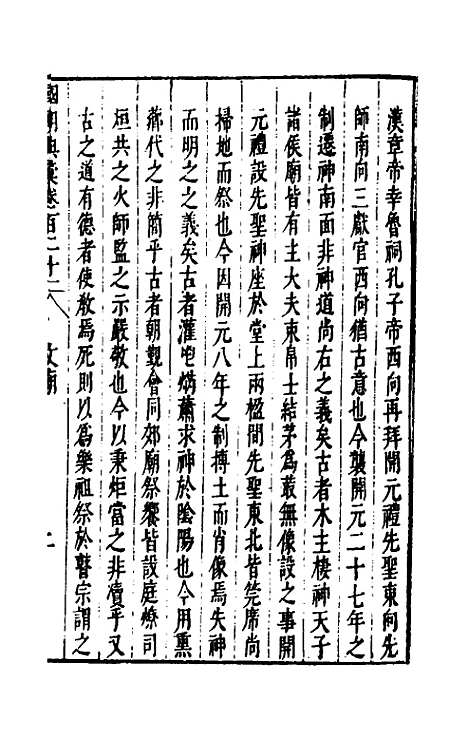 漢章帝幸魯祠孔子帝西向再拜開元禮先聖東向先
師南向三獻官西向猶古意也今襲開元二十七年之
制遷神南面非神道尚右之義矣古者木主棲神天子
諸侯廟皆有主大夫束帛士結茅為菆無像設之事開
元禮設先聖神座於堂上兩楹間先聖東北皆莞席尚
掃地而祭也今因開元八年之制摶土而肖像焉失神
而明之之義矣古者灌鬯焫蕭求神於陰陽也今用熏
薌代之非簡乎古者朝覲會同郊廟祭饗皆設庭燎司
烜共之火師監之示嚴敬也今以秉炬當之非瀆乎又
古之道有德者使教焉死則以為樂祖祭於瞽宗謂之
國朝典彙卷百二十二 文廟